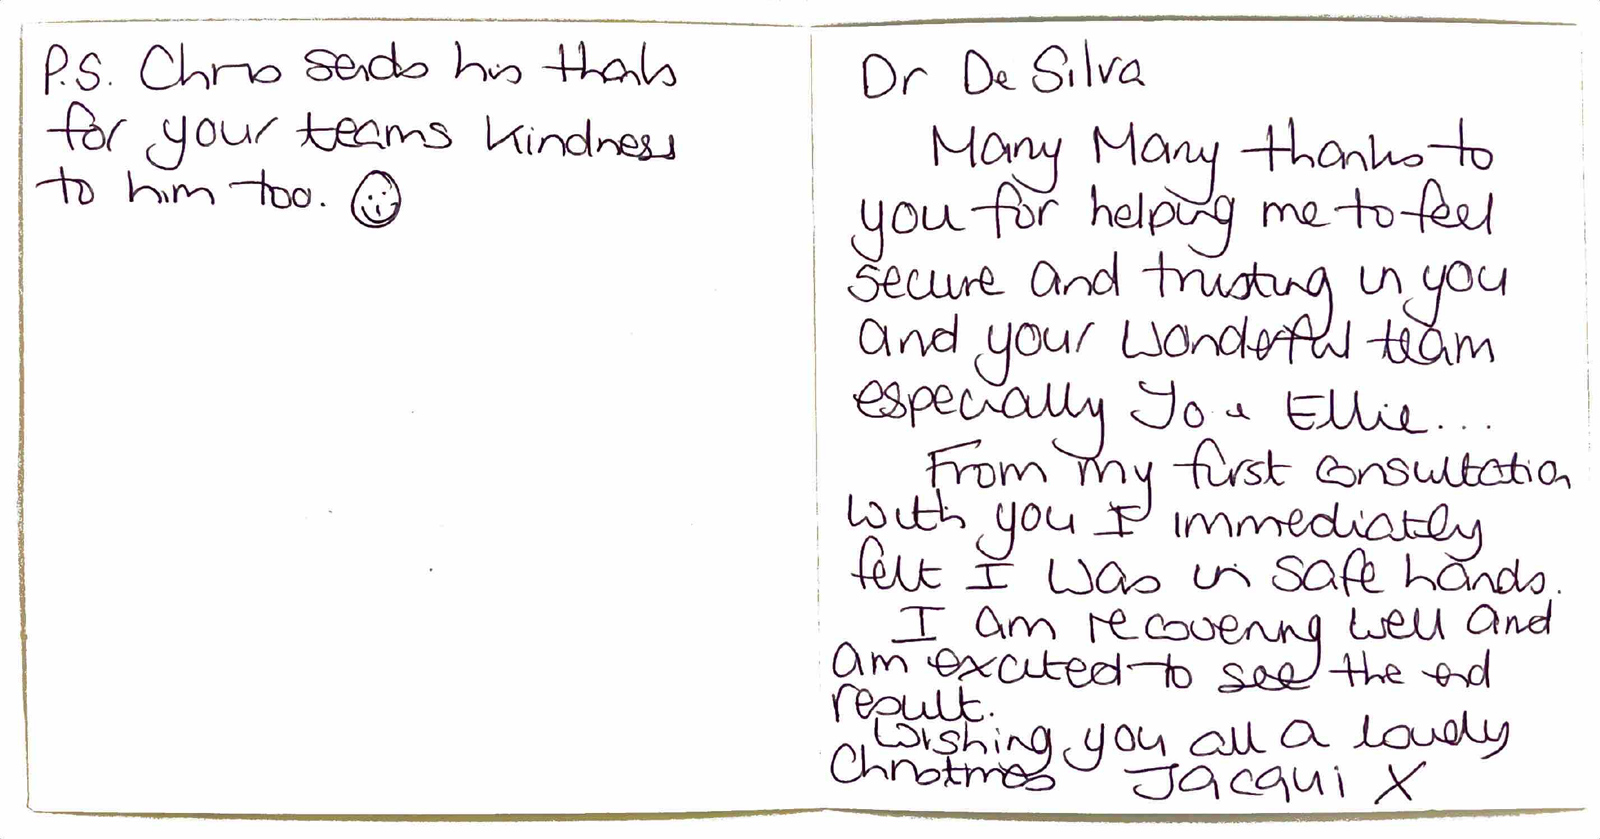 P.S. Chris sends his thanks
for your teams kindness
to him too. ☺
Dr De Silva
Many Many thanks to
you for helping me to feel
secure and trusting in you
and your wonderful team
especially Jo & Ellie...
From my first consultation
with you I immediately
felt I was in safe hands.
I am recovering well and
am excited to see the end
result.
Wishing you all a lovely
Christmas Jacqui X